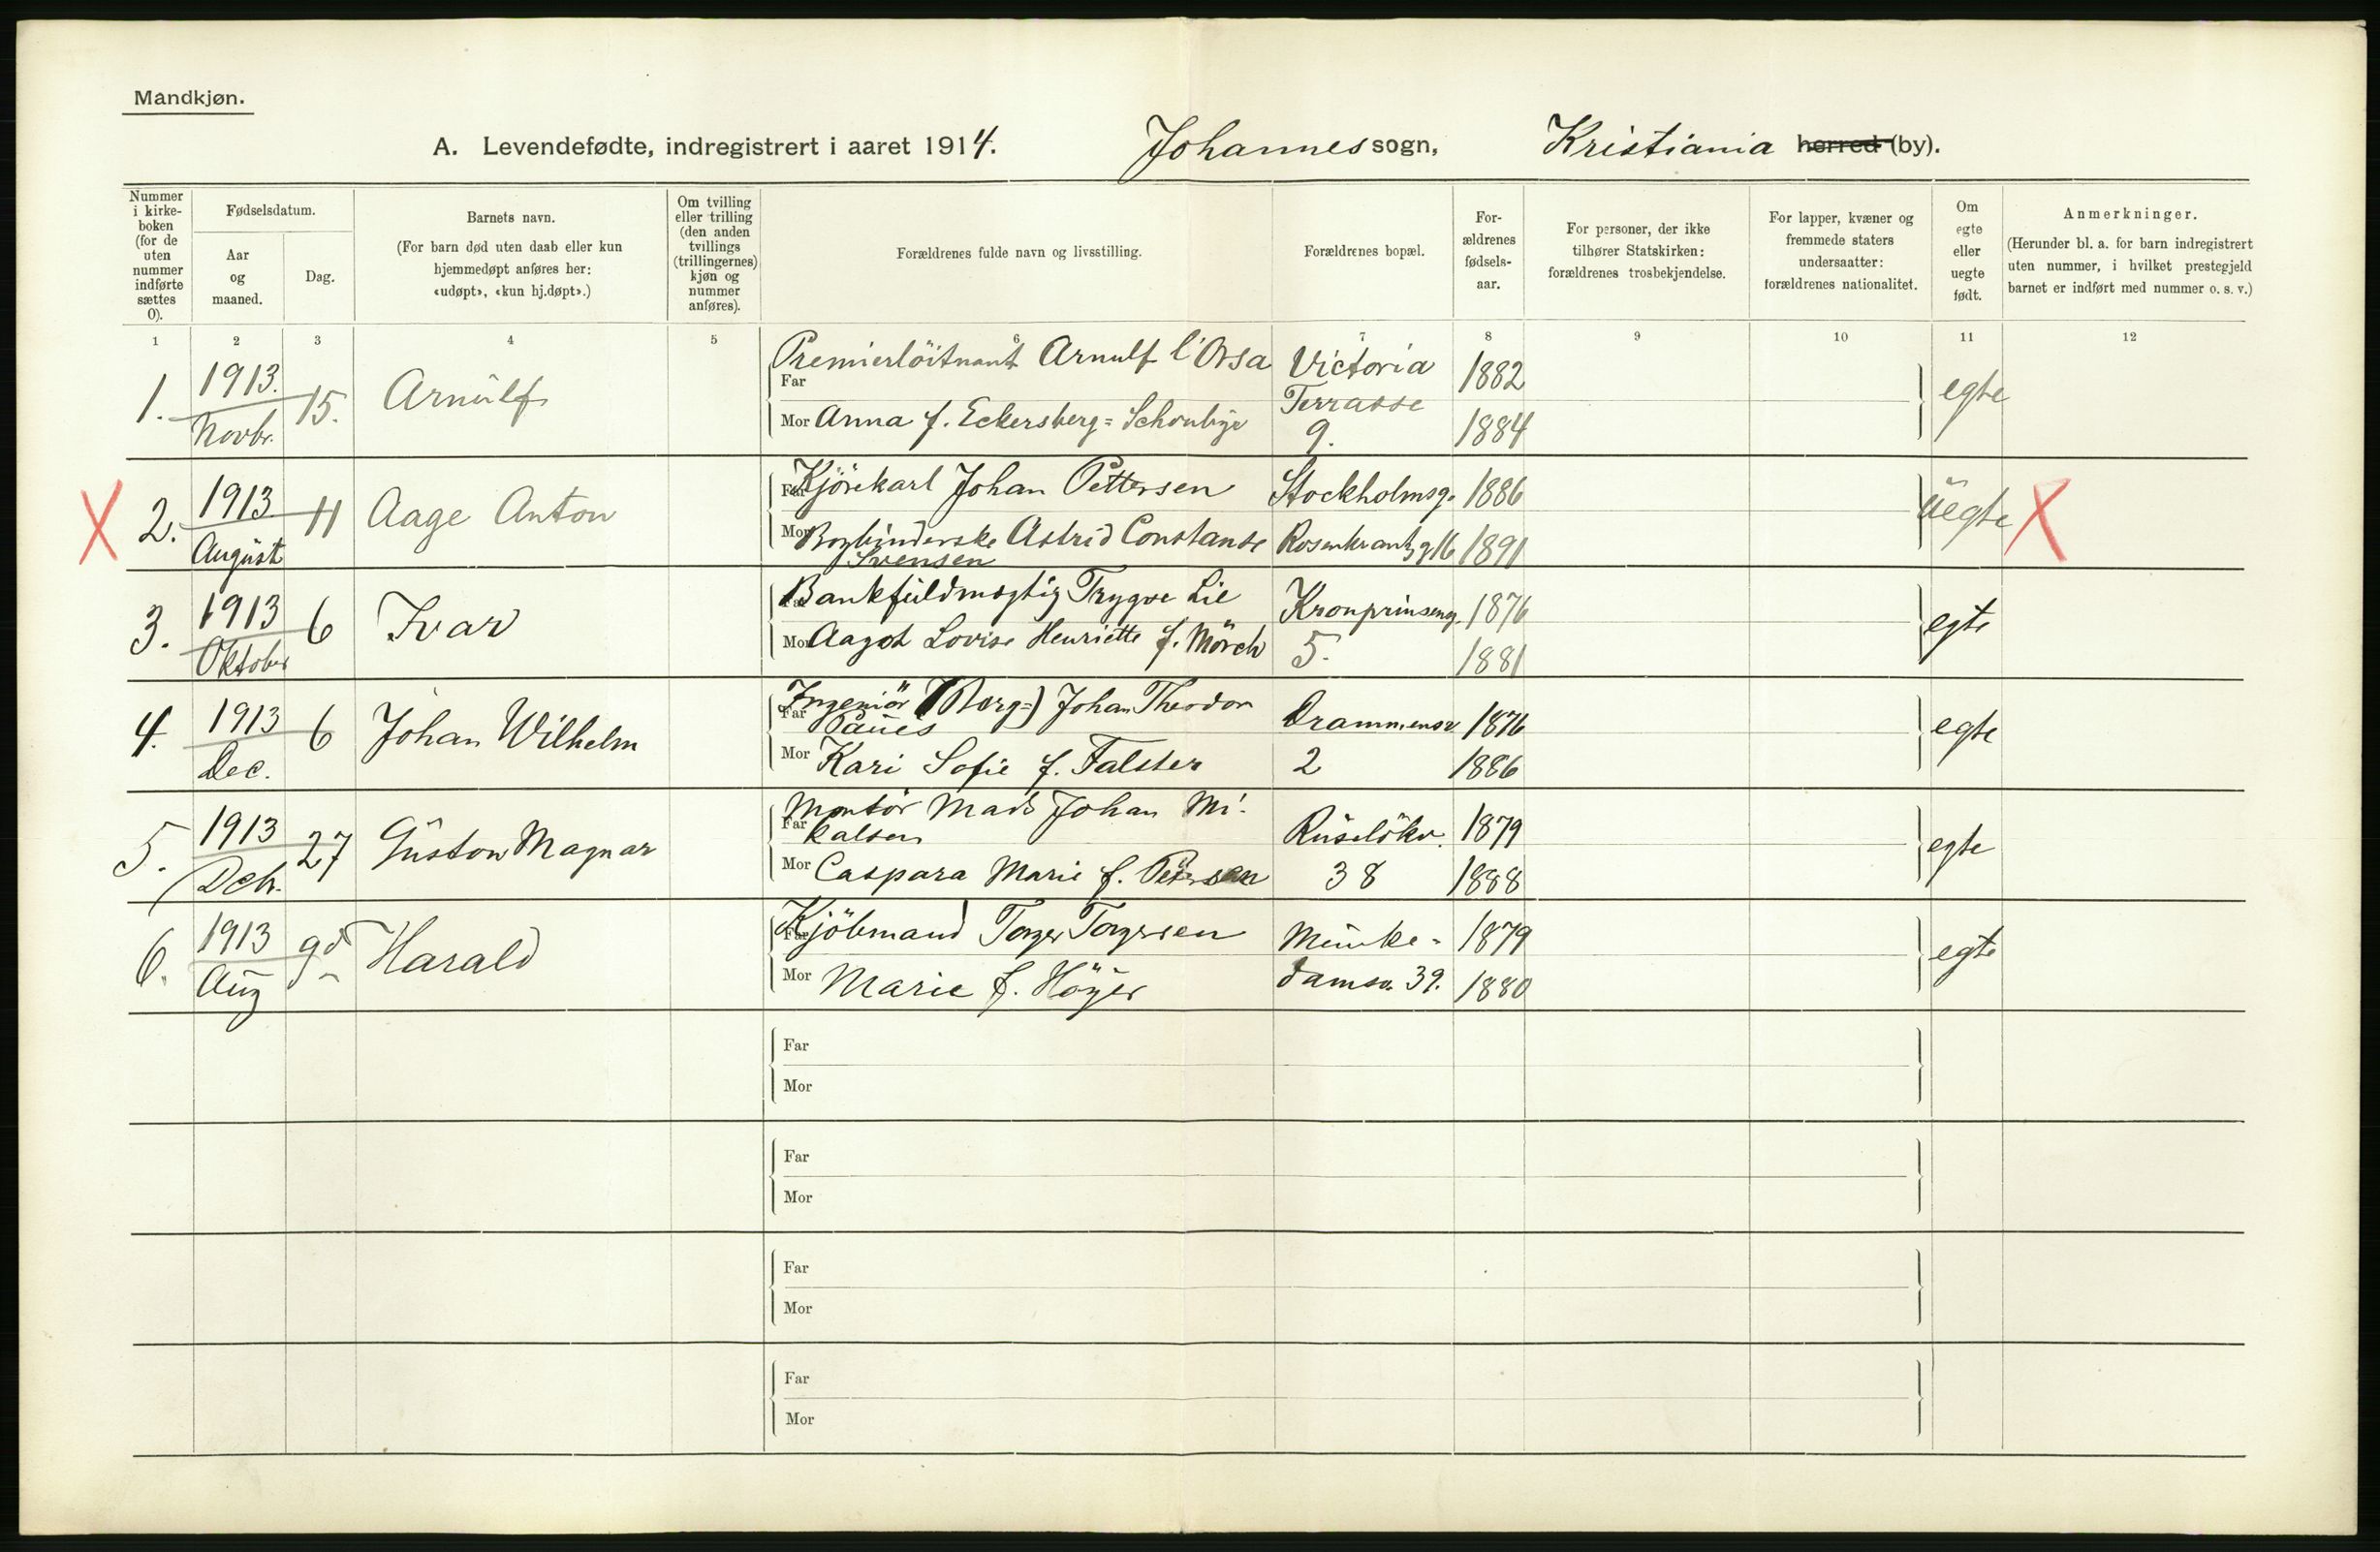 Mandkjøn.
A. Levendefødte, indregistrert i aaret 1914. Johannes sogn, Kristiania herred (by).
Nummer i kirke-boken (for de uten nummer indførte sættes 0).
Fødselsdatum.
Aar og maaned.
Dag.
Barnets navn.
(For barn død uten daab eller kun hjemmedøpt anføres her: «udøpt», «kun hj.døpt».)
Om tvilling eller trilling (den anden tvillings (trillingernes) kjøn og nummer anføres).
Forældrenes fulde navn og livsstilling.
Forældrenes bopæl.
For-ældrenes fødsels-aar.
For personer, der ikke tilhører Statskirken: forældrenes trosbekjendelse.
For lapper, kvæner og fremmede staters undersaatter: forældrenes nationalitet.
Om egte eller uegte født.
Anmerkninger.
(Herunder bl. a. for barn indregistrert uten nummer, i hvilket prestegjeld barnet er indført med nummer o. s. v.)
1 2 3 4 5 6 7 8 9 10 11 12
1. 1913. Novbr. 15. Arnulf
Far Premierløitnant Arnulf l'Orsa Victoria 1882
Mor Anna f. Eckersberg= Terrasse 9. 1884 egte
X 2. 1913 August 11 Aage Anton
Far Kjörekarl Johan Pettersen Stockholmsg. 1886
Mor Bogbinderske Astrid Constanse Svensen Rosenkrantzg 16 1891 uegte X
3. 1913 Oktober 6 Ivar
Far Bankfuldmægtig Trygve Lie Kronprinseng. 1876
Mor Aagot Lovise Henriette f. Mörch 5. 1881 egte
4. 1913 Dec. 6 Johan Wilhelm
Far Ingeniör (Berg=) Johan Theodor Paues Drammensv 1876
Mor Kari Sofie f. Falster 2 1886 egte
5. 1913 Dcb. 27 Gustav Magnar
Far Montör Mads Johan Mikalsen Ruselökv. 1879
Mor Caspara Marie f. Petersen 38 1888 egte
6. 1913 Aug 9d Harald
Far Kjöbmand Torger Torgersen Munke- 1879
Mor Marie f. Höyer damsv. 39. 1880 egte
Far
Mor
Far
Mor
Far
Mor
Far
Mor